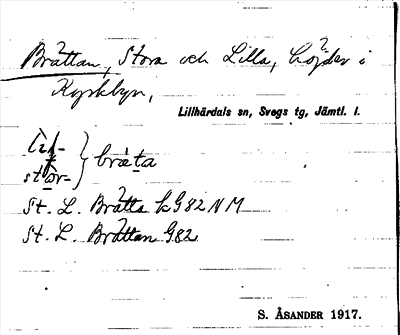 Brättan, Stora och Lilla, höjder i
Kyrkbyn,
Lillhärdals sn, Svegs tg, Jämtl. l.
stor- } bräta
St. L. Brätta k G 82 NM
St. L. Brättan G 82
S. ÅSANDER 1917.